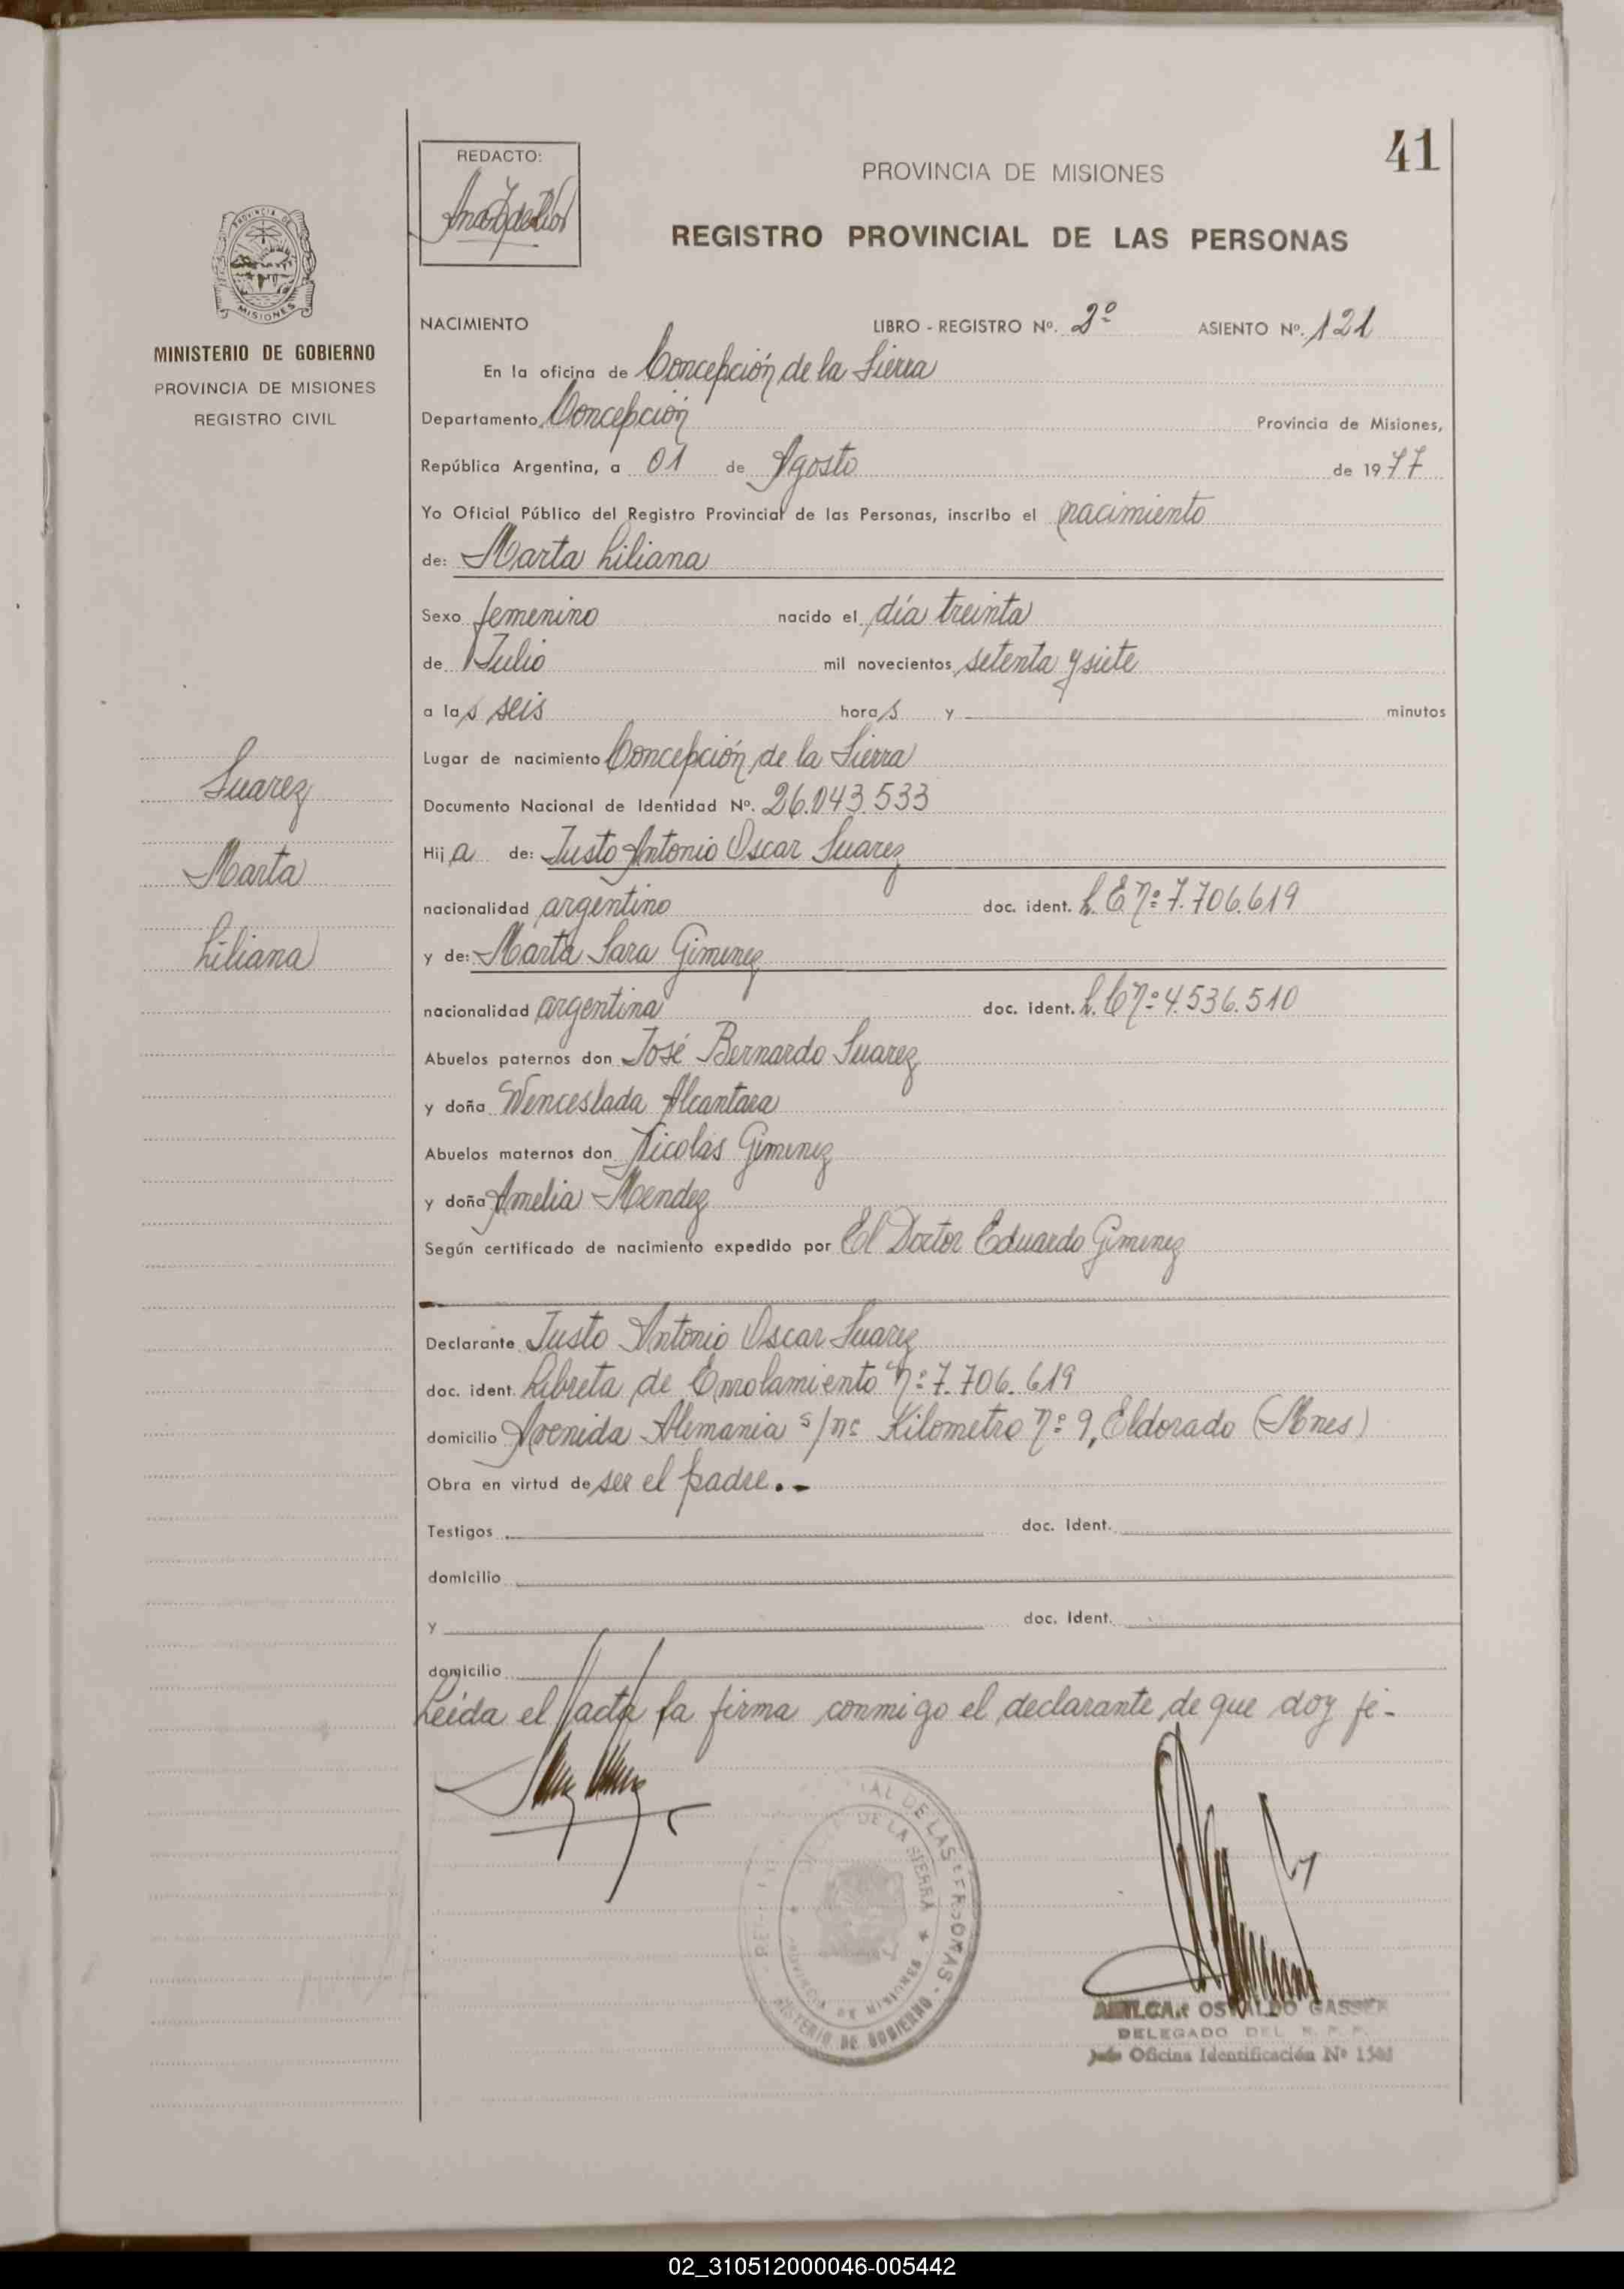 41
REDACTO:
PROVINCIA DE MISIONES
REGISTRO PROVINCIAL DE LAS PERSONAS
PROVINCIA DE
MISIONES
MINISTERIO DE GOBIERNO
PROVINCIA DE MISIONES
REGISTRO CIVIL
NACIMIENTO LIBRO - REGISTRO Nº. 2º ASIENTO Nº. 121
En la oficina de Concepción de la Sierra
Departamento Concepción Provincia de Misiones,
República Argentina, a 01 de Agosto de 1977
Yo Oficial Público del Registro Provincial de las Personas, inscribo el nacimiento
de: Marta Liliana
Sexo femenino nacido el día treinta
de Julio mil novecientos setenta y siete
a las seis horas y minutos
Lugar de nacimiento Concepción de la Sierra
Documento Nacional de Identidad Nº. 26.043.533
Hija de: Justo Antonio Oscar Suarez
nacionalidad argentino doc. ident. L. E nº 7.706.619
y de: Marta Sara Gimenez
nacionalidad argentina doc. ident. L. C nº 4.536.510
Abuelos paternos don José Bernardo Suarez
y doña Wenceslada Alcantara
Abuelos maternos don Nicolás Gimenez
y doña Amelia Mendez
Según certificado de nacimiento expedido por El Doctor Eduardo Gimenez
Declarante Justo Antonio Oscar Suarez
doc. ident. Libreta de Enrolamiento nº 7.706.619
domicilio Avenida Alemania s/nº Kilometro nº 9, Eldorado (Mnes)
Obra en virtud de ser el padre.-
Testigos doc. Ident.
domicilio
y doc. Ident.
domicilio
Leída el acta la firma conmigo el declarante de que doy fé-
Suarez
Marta
Liliana
AL DE LAS PERSONAS
DE LA SIERRA
PROVINCIA DE MISIONES
MINISTERIO DE GOBIERNO
AMILCAR OSVALDO GASSER
DELEGADO DEL R. P. P.
Jefe Oficina Identificación Nº
02_310512000046-005442